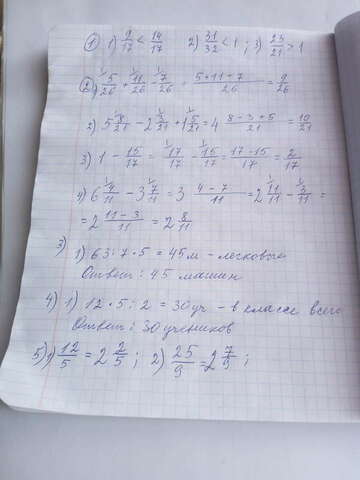 ① 1) 9/17 < 14/17  2) 31/32 < 1 ; 3) 23/21 > 1
② 1) 5/26 + 11/26 - 7/26 = 5+11+7/26 = 9/26
2) 5 8/21 - 2 3/21 + 1 5/21 = 4 8-3+5/21 = 10/21
3) 1 - 15/17 = 17/17 - 15/17 = 17-15/17 = 2/17
4) 6 4/11 - 3 7/11 = 3 4-7/11 = 2 11/11 - 3/11 =
= 2 11-3/11 = 2 8/11
3)
1) 63:7·5 = 45м - легковых
Ответ: 45 машин
4) 1) 12·5:2 = 30уч - в классе всего
Ответ: 30 учеников
5) 1) 12/5 = 2 2/5 ; 2) 25/9 = 2 7/9 ;